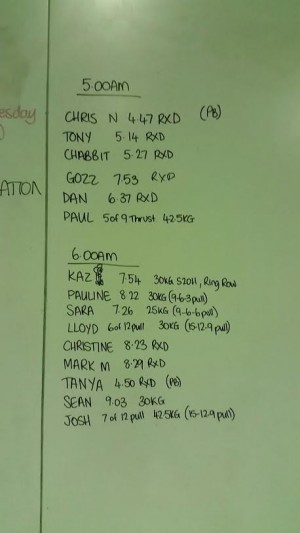 5:00AM
CHRIS N 4:47 RXD (PB)
esday
TONY 5:14 RXD
CHABBIT 5:27 RXD
GOZZ 7:53 RXD
ATION
DAN 6:37 RXD
PAUL 5 of 9 Thrust 42.5KG
6:00AM
KAZ 7:54 30KG, Ring Row
PAULINE 8:22 30KG (9-6-3 pull)
SARA 7:26 25KG (9-6-6 pull)
LLOYD 6 of 12 pull 30KG (15-12-9 pull)
CHRISTINE 8:23 RXD
MARK M 8:29 RXD
TANYA 4:50 RXD (PB)
SEAN 9:03 30KG
JOSH 7 of 12 pull 42.5KG (15-12-9 pull)